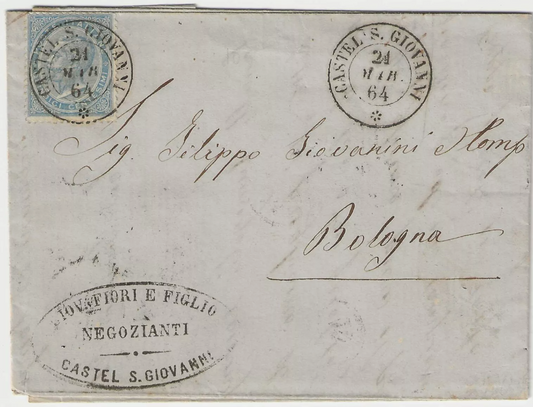 CASTEL S. GIOVANNI
21
MAR
64
CASTEL S. GIOVANNI
21
MAR
64
Sig. Filippo Giovanini Comp
Bologna
IOVAFIORI E FIGLIO
NEGOZIANTI
CASTEL S. GIOVANNI